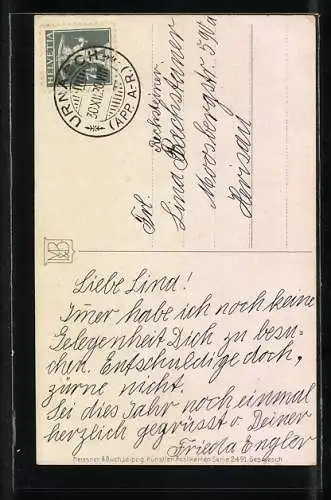 HELVETIA
URNÄSCH
30.XII.30
(APP. A-R.)
Frl.
Dachsteiner
Lina Bachstaner
Moosbergstr. 590a
Herisau
Liebe Lina!
Im̄er habe ich noch keine
Gelegenheit Dich zu besu-
chen. Entschuldige doch,
zürne nicht.
Sei dies Jahr noch einmal
herzlich gegrüsst v. Deiner
Frieda Engler
Meissner & Buch, Leipzig. Künstler-Postkarten Serie 2491. Ges. gesch.